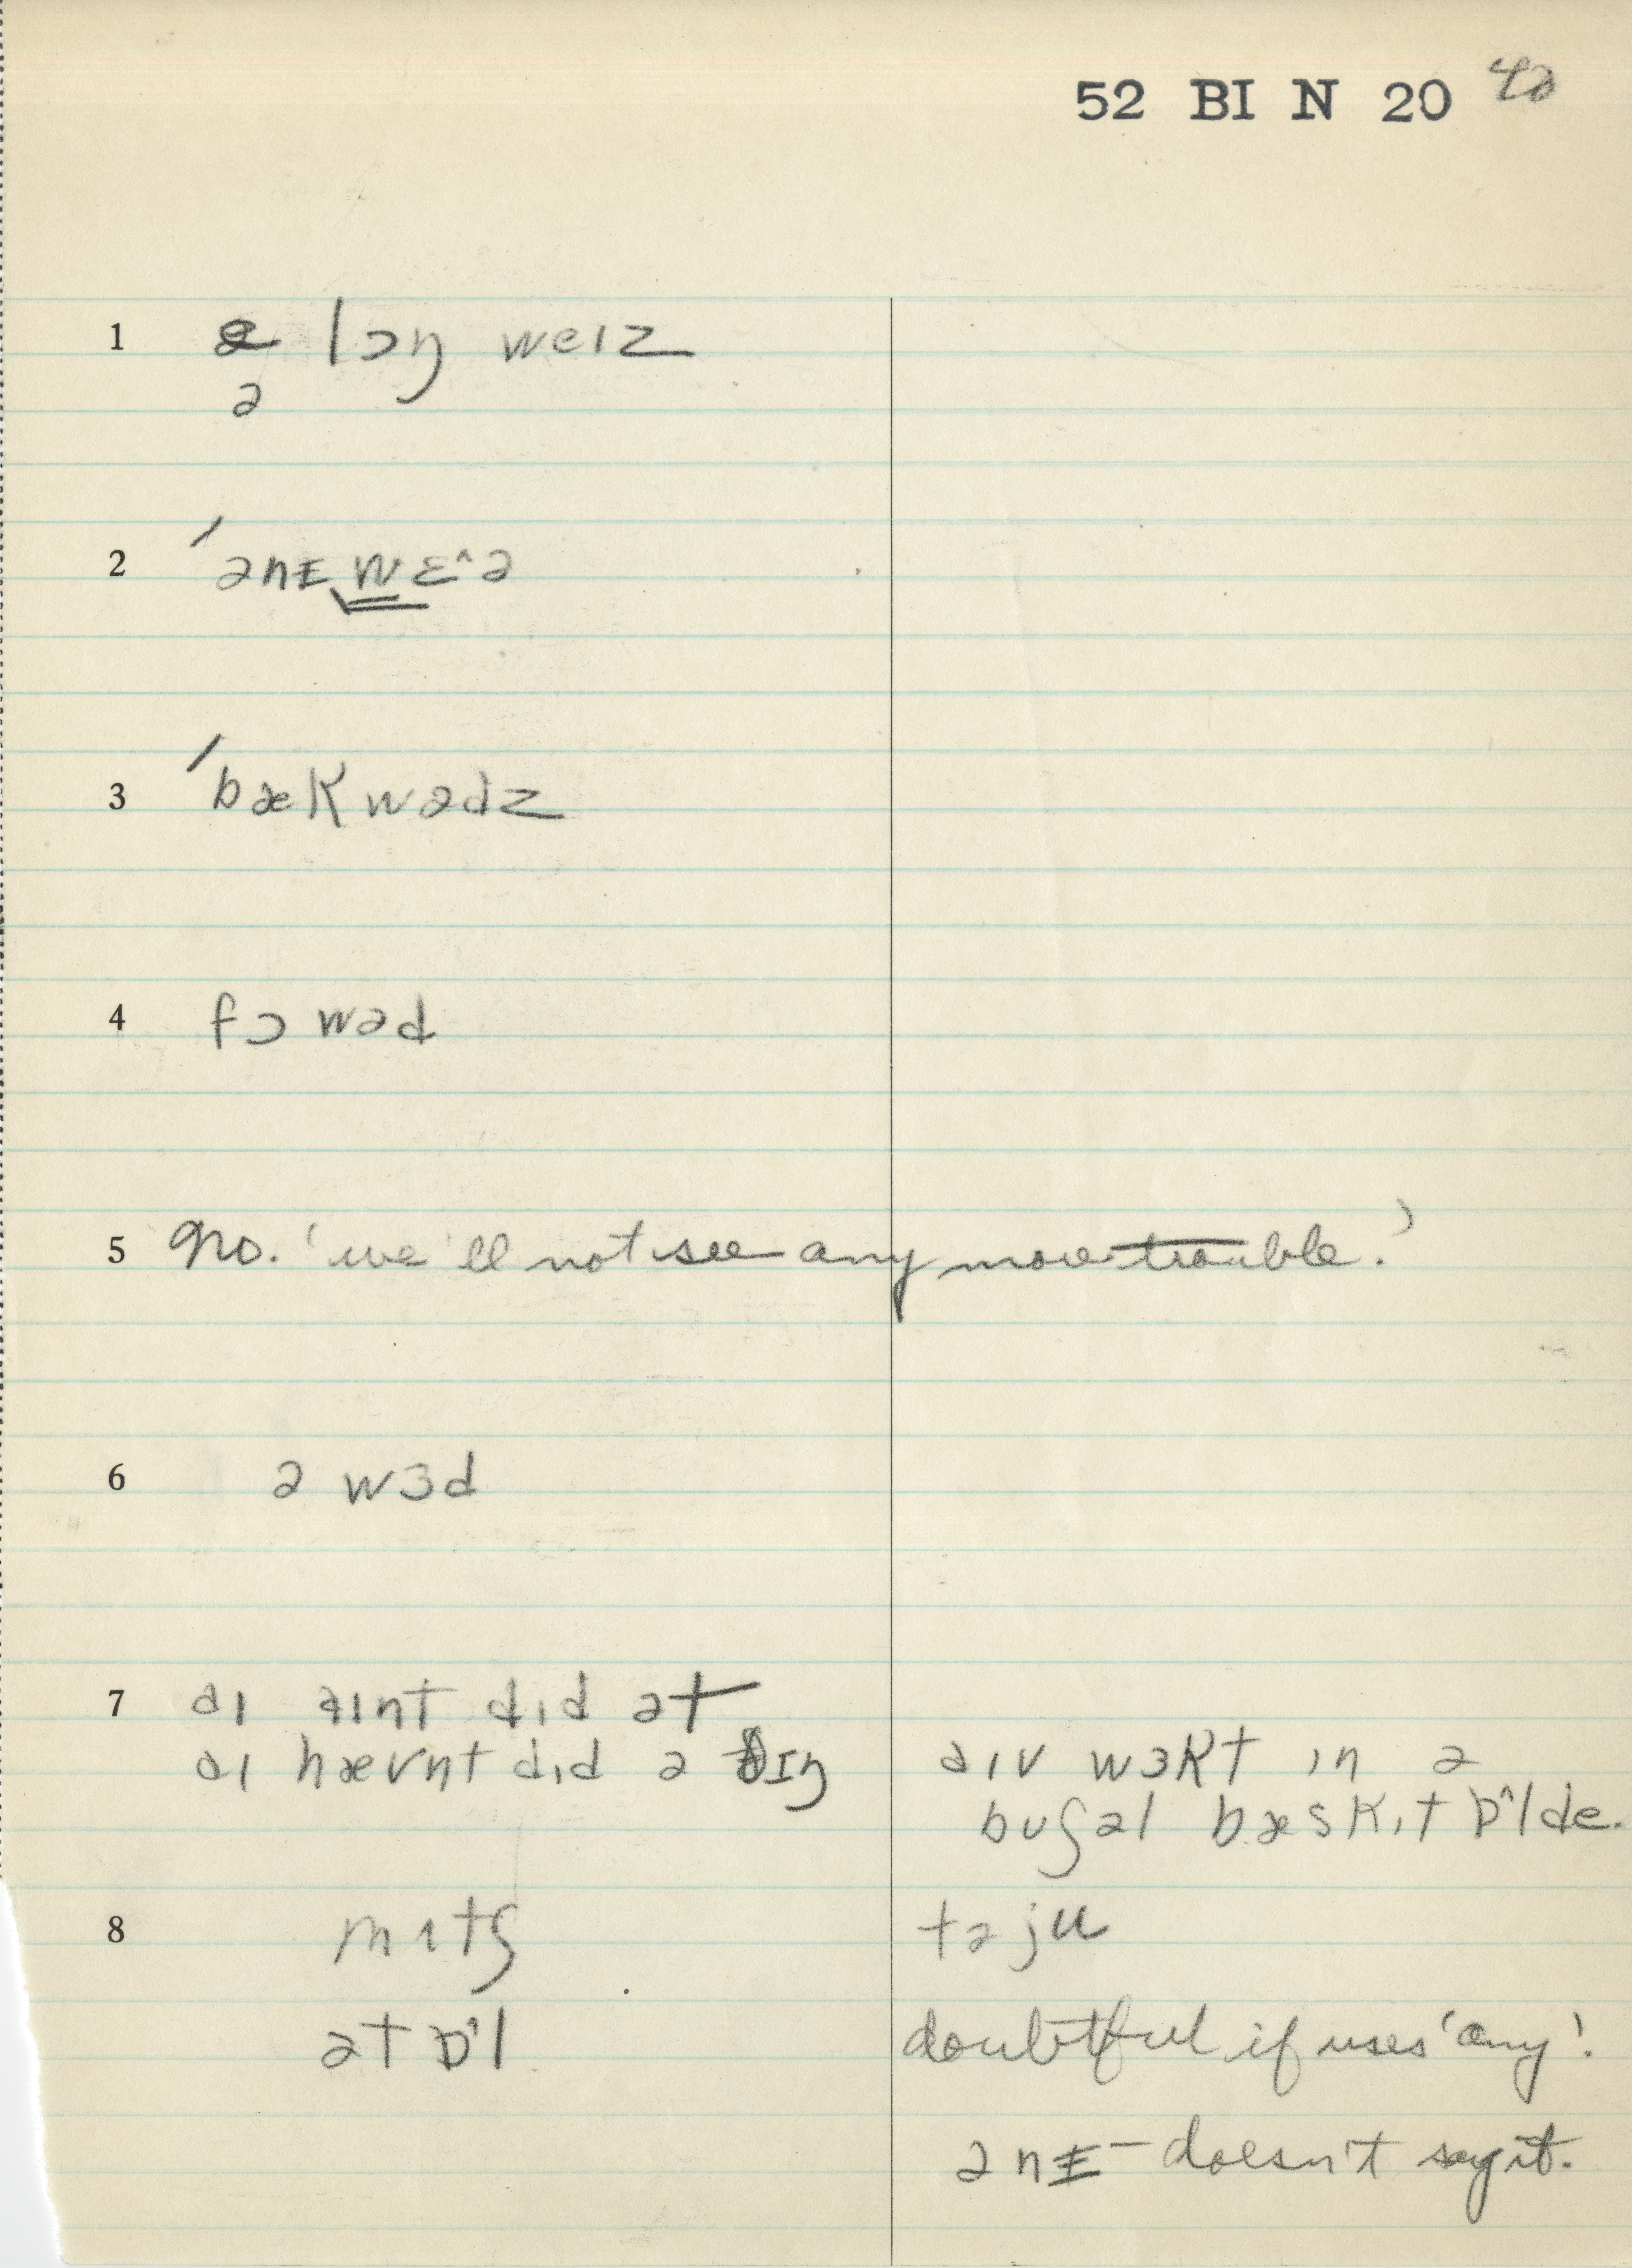 52 BI N 20 40
1 ə lɔŋ weɪz
ə
2 ˈənɪ̵ wɛ^ə
3 ˈbækwədz
4 fɔwəd
5 No. 'we'll not see any more trouble.'
6 ə wɜd
7 aɪ aɪnt dɪd ət
aɪ hævnt dɪd ə θɪŋ
aɪv wɜkt ɪn ə
buʃəl bæskɪt ɒ^lde.
8 mɪtʃ
təju
ət ɒ^l
doubtful if uses 'any'.
ənɪ̵ – doesn't say it.